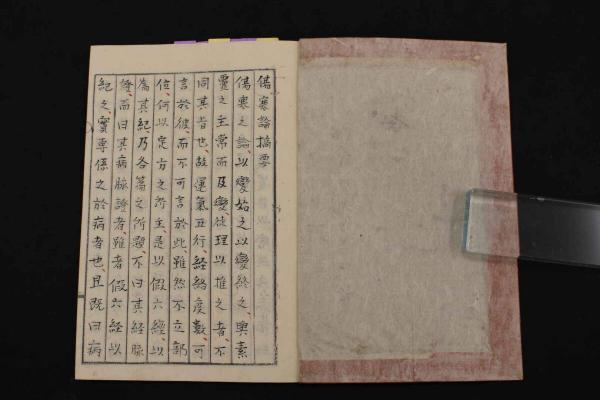 傷寒論摘要
傷寒之論、以變始之以變終之、與素
靈之主常而及變、從理以推之者、不
同其者也、故運氣五行、經絡度數、可
言於彼、而不可言於此、雖然不立部
位、何以定方之所主、是以假六經、以
為其紀、乃各篇之所題、不曰其經脉
證、而曰其病脉證者、雖者假六經以
紀之、實專係之於病者也、且既曰病